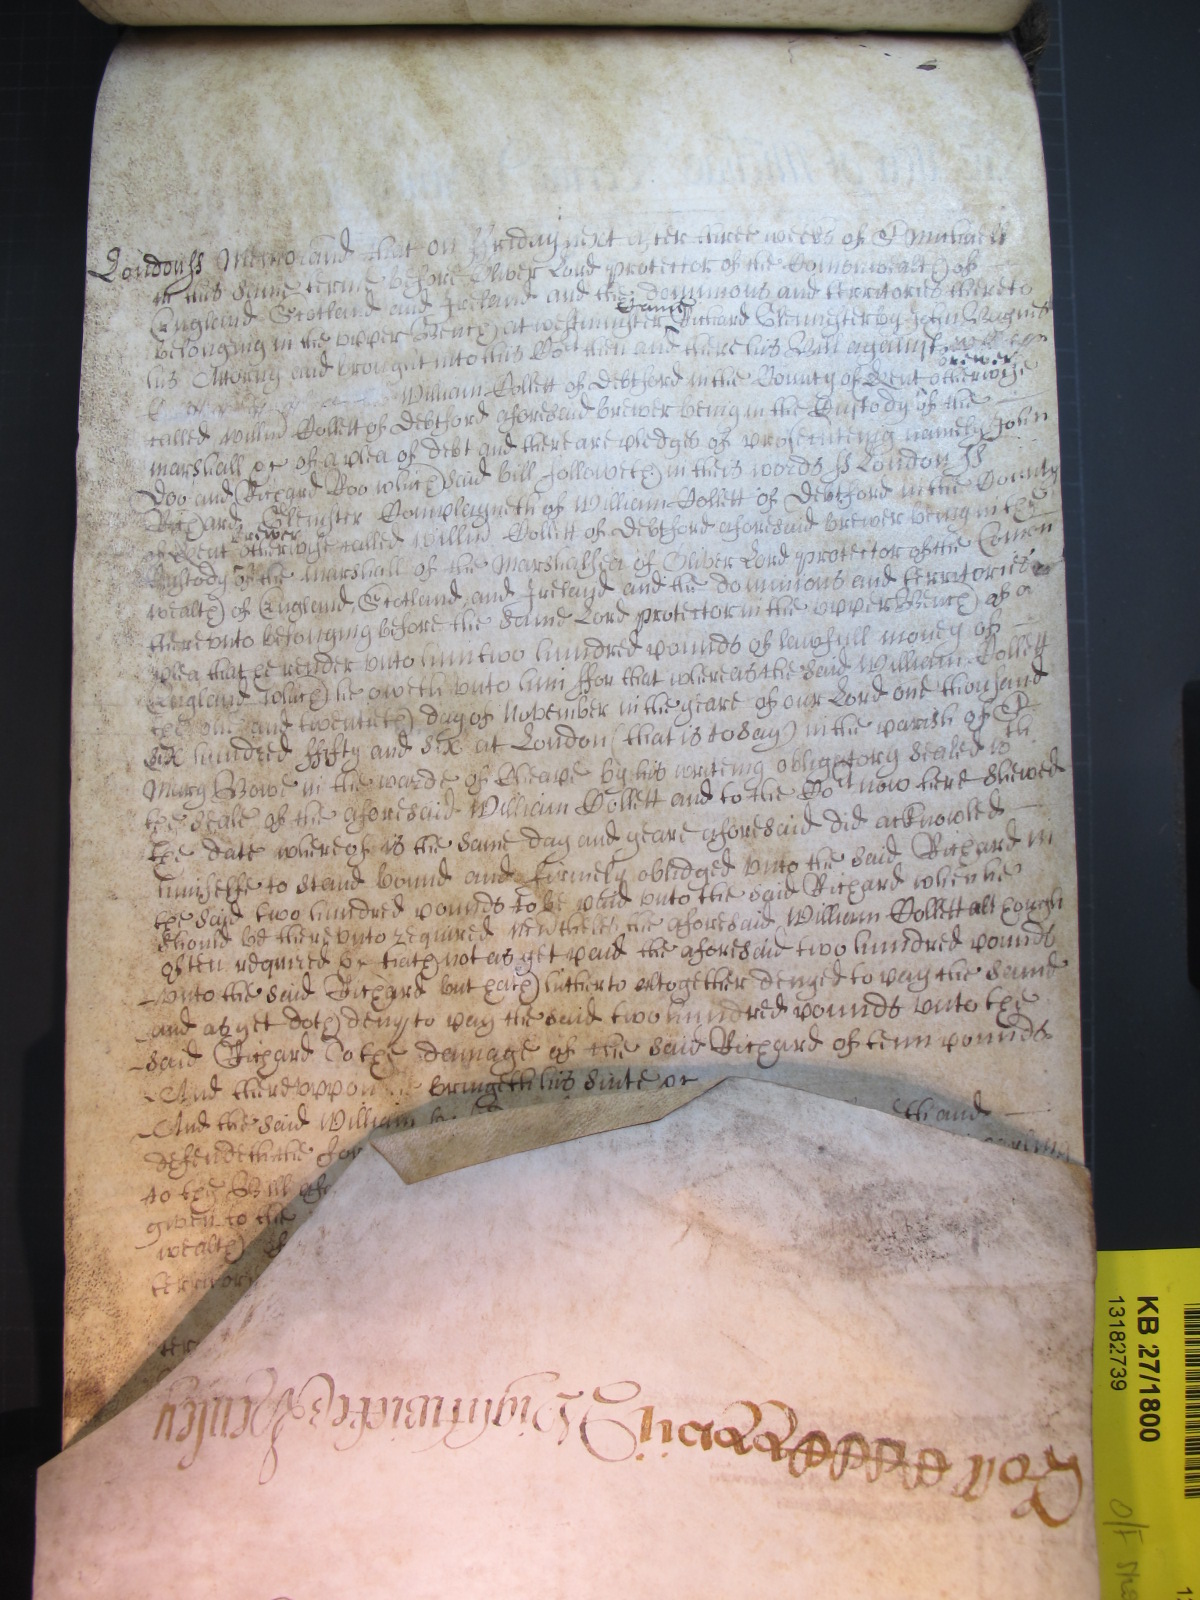 London ss Memorand that on Friday next after three weeks of St Michaell
in this same terme before Oliver Lord protector of the Comonwealth of
England Scotland and Ireland and the dominions and territories thereto
belonging in the upper Bench at westminster came Richard Gleinster by John
his Attorny and brought into his Cort then and there his Bill against
William Collett of Debtford in the County of Kent brewer otherwise
called Willm Collett of Debtford aforesaid brewer being in the Custody of the
marshall &c of a plea of debt and there are pledges of prosecuteing namely John
Doo and Richard Roo which said bill followeth in theis words ss London ss
Richard Gleinster Complayneth of William Collett of Debtford in the County
of Kent brewer otherwise called Willm Collett of Debtford aforesaid brewer being in the
Custody of the marshall of the Marshallsea of Oliver Lord protector of the Comon
wealth of England, Scotland, and Ireland and the dominions and territories
thereunto belonging before the same Lord protector in the upper Bench of a
plea that he render unto him two hundred pounds of lawfull money of
England which he oweth unto him ffor that whereas the said William Collett
the one and twentieth day of November in the yeare of our Lord one thousand
six hundred ffifty and six at London (that is to say) in the parish of St
Mary Bowe in the warde of Cheape by his writeing obligatory sealed with
the seale of the aforesaid William Collett and to the Cort now here shewed
the date whereof is the same day and yeare aforesaid did acknowled
himselfe to stand bound and firmely oblidged unto the said Richard in
the said two hundred pounds to be paid unto the said Richard when he
should be thereunto required Nevtheles the aforesaid William Collett although
often required &c hath not as yet paid the aforesaid two hundred pounds
unto the said Richard but hath hitherto altogether denyed to pay the same
and as yet doth deny to pay the said two hundred pounds unto the
said Richard To the damage of the said Richard of tenn pounds
And thereuppon bringeth his suite &c
And the said William th and
defendeth the
to the Bill
given to the
wealth
KB 27/1800
13182739